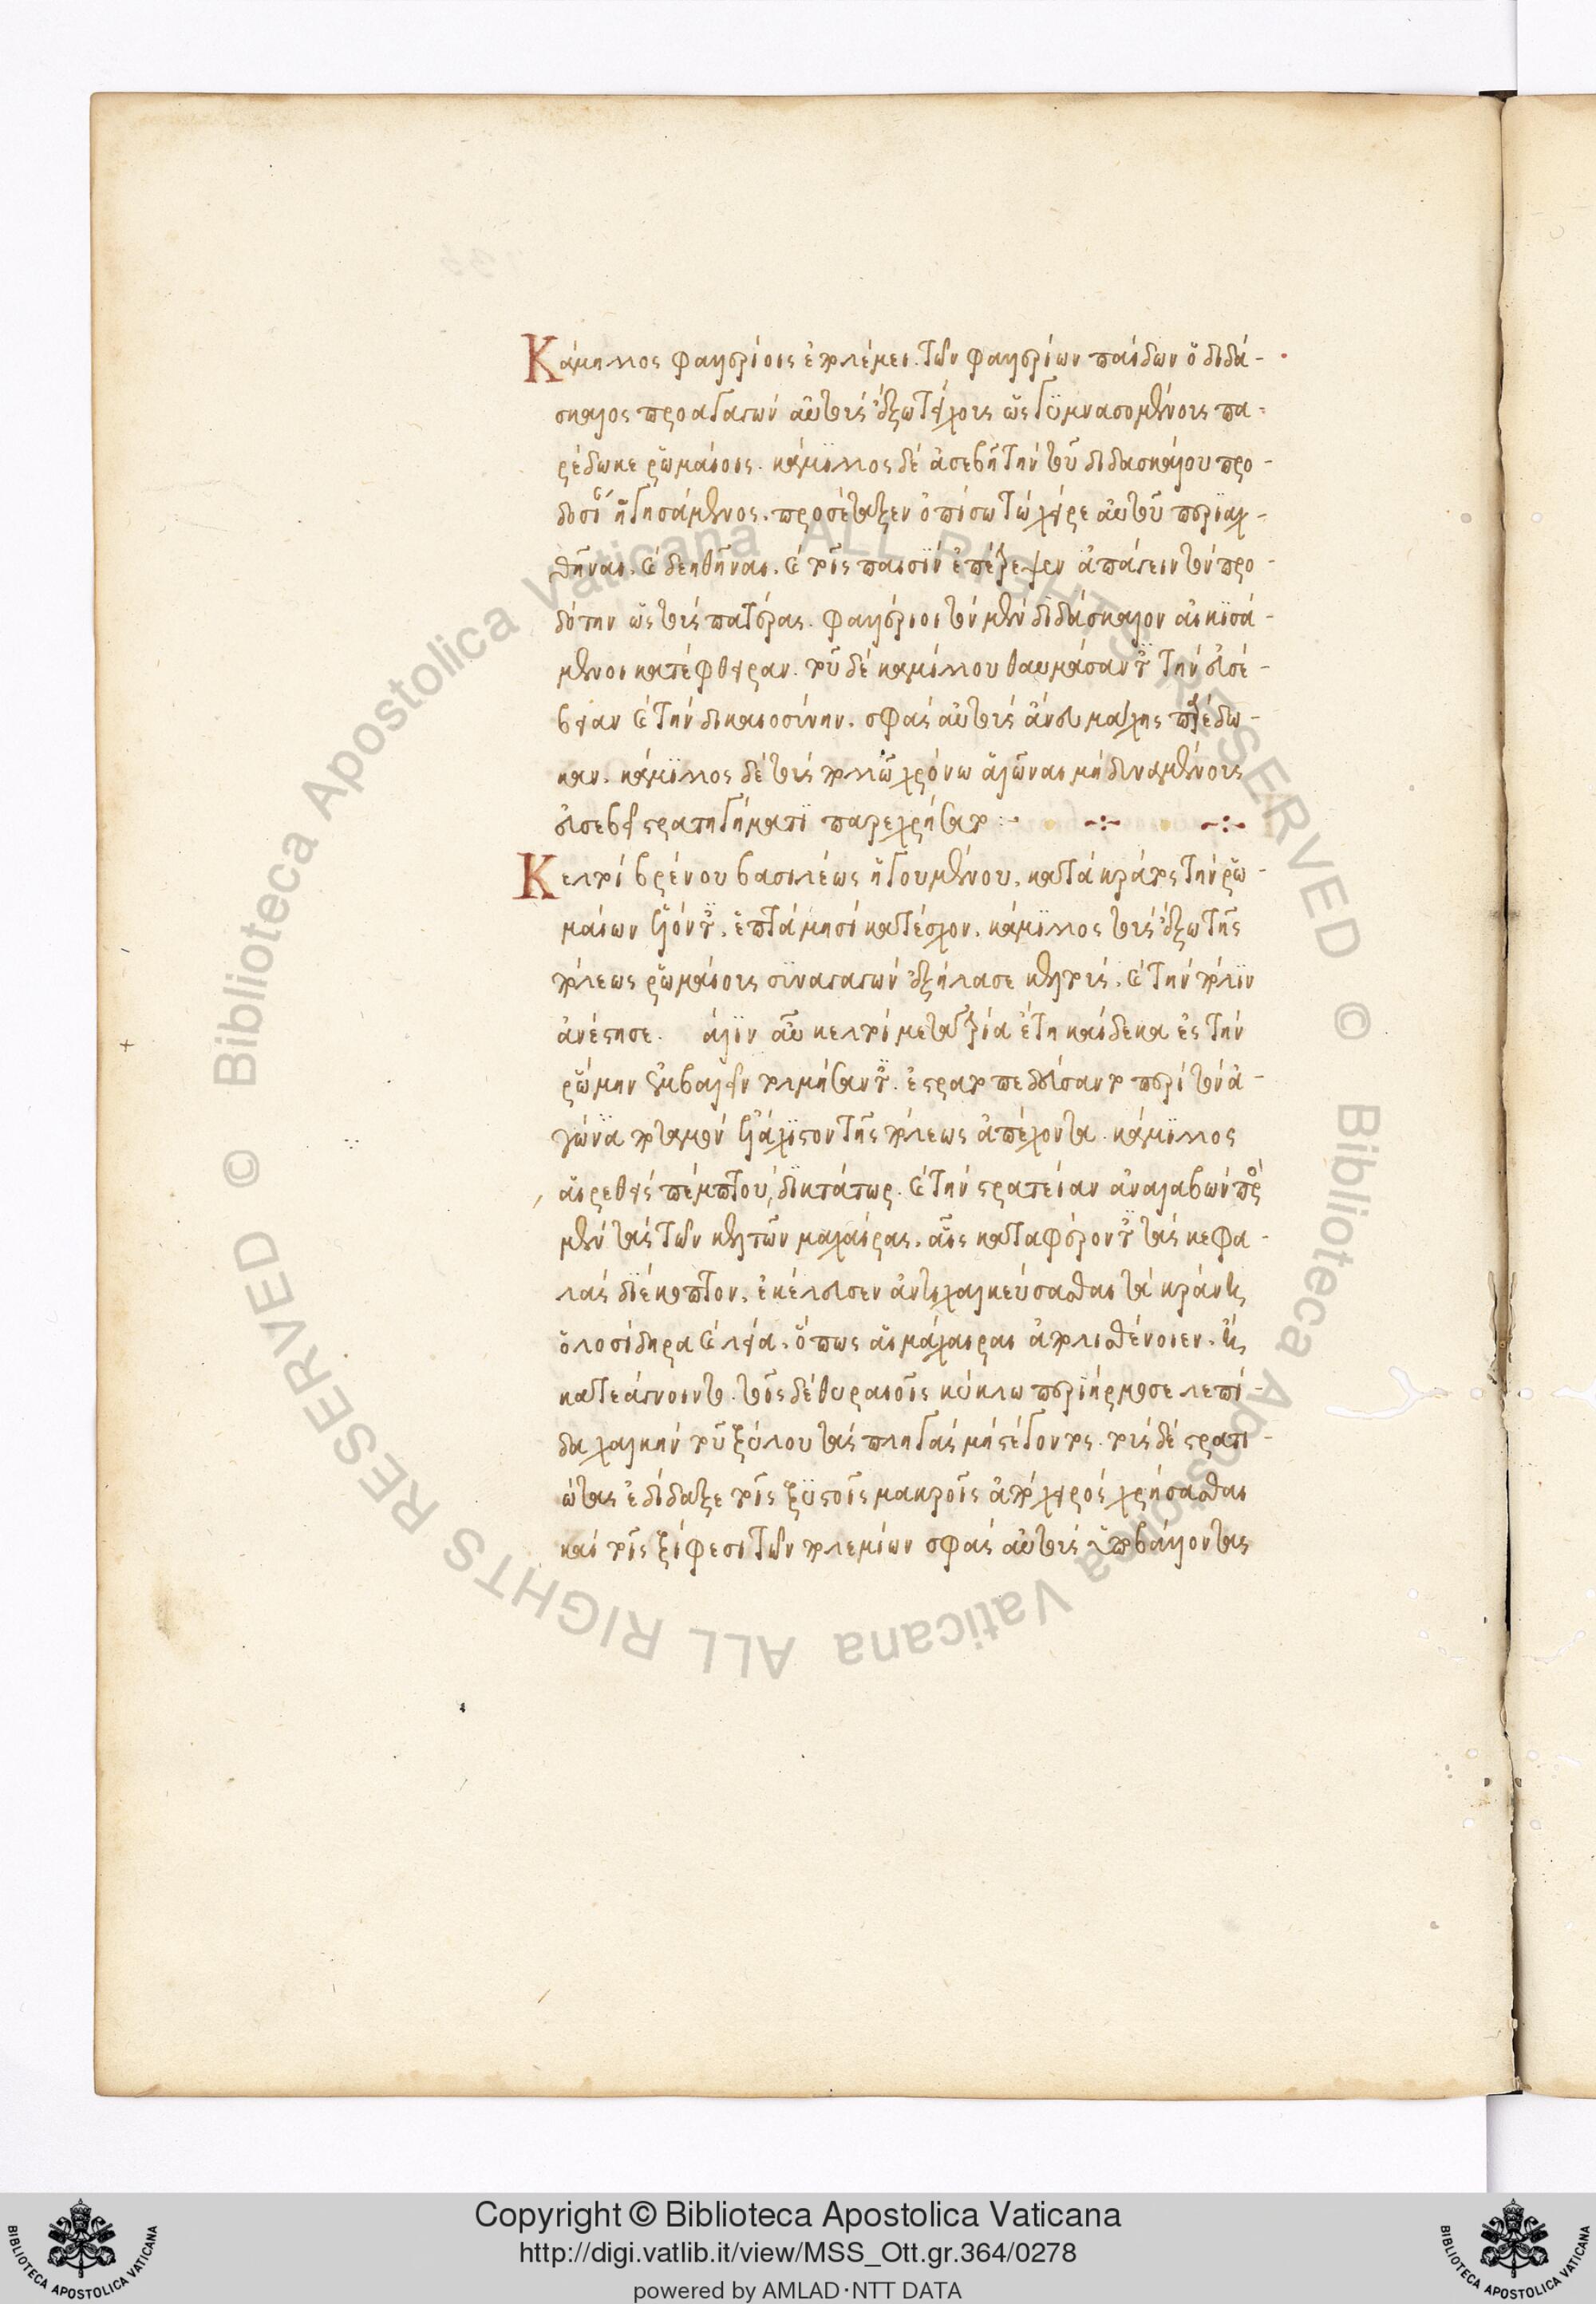 Κάμιλλος φαλερίοις ἐπολέμει. τῶν φαλερίων παίδων ὁ διδά-
σκαλος προαγαγὼν αὐτοὺς ἔξω τείχους ὡς γυμνασομένους πα-
ρέδωκε ῥωμαίοις. κάμιλλος δὲ ἀσεβῆ τὴν τοῦ διδασκάλου προ-
δοσίαν ἡγησάμενος. προσέταξεν ὀπίσω τὼ χεῖρε αὐτοῦ περιαχ-
θῆναι. καὶ δεηθῆναι. καὶ τοῖς παισὶν ἐπέτρεψεν ἀπάγειν τὸν προ-
δότην ὡς τοὺς πατέρας. φαλέριοι τὸν μὲν διδάσκαλον αἰκισά-
μενοι κατέφθειραν. τοῦ δὲ καμίλλου θαυμάσαντες τὴν εὐσέ-
βειαν καὶ τὴν δικαιοσύνην. σφᾶς αὐτοὺς ἄνευ μάχης παρέδω-
καν. κάμιλλος δὲ τοὺς πολλῶ χρόνω ἁλῶναι μὴ δυναμένους
εὐσεβεῖ στρατηγήματι παρεστήσατο :- -:- -:-
Κελτοὶ βρένου βασιλέως ἡγουμένου. κατὰ κράτος τὴν ῥω-
μαίων ἑλόντες. ἑπτὰ μησὶ κατέσχον. κάμιλλος τοὺς ἔξω τῆς
πόλεως ῥωμαίους συναγαγὼν ἐξήλασε κελτοὺς. καὶ τὴν πόλιν
ἀνέστησε. πάλιν αὖ κελτοὶ μετὰ τρία ἔτη καίδεκα ἐς τὴν
ῥώμην ἐμβαλεῖν τολμήσαντες. ἐστρατοπεδεύσαντο περὶ τὸν ἀ-
λῶνα ποταμὸν οὐ μάλιστον τῆς πόλεως ἀπέχοντα. κάμιλλος
αἱρεθεὶς πέμπτου, δικτάτωρ. καὶ τὴν στρατείαν ἀναλαβὼν πρὸς
μὲν τὰς τῶν κελτῶν μαχαίρας. αἷς καταφέροντες τὰς κεφα-
λὰς διέκοπτον. ἐκέλευσεν ἀντιχαλκεύσασθαι τὰ κράνη
ὁλοσίδηρα καὶ λεῖα. ὅπως αἱ μάχαιραι ἀπολισθένοιεν. ἢ
κατεάγνοιντο. τοῖς δὲ θυραιοῖς κύκλω περιήρμοσε λεπί-
δα χαλκὴν τοῦ ξύλου τὰς πληγὰς μὴ στέγοντος. τοὺς δὲ στρατι-
ώτας ἐδίδαξε τοῖς ξυστοῖς μακροῖς ἀπὸ χειρὸς χρήσασθαι
καὶ τοῖς ξίφεσι τῶν πολεμίων σφᾶς αὐτοὺς ὑποβάλλοντας
Copyright © Biblioteca Apostolica Vaticana
http://digi.vatlib.it/view/MSS_Ott.gr.364/0278
powered by AMLAD·NTT DATA
© Biblioteca Apostolica Vaticana ALL RIGHTS RESERVED
© Biblioteca Apostolica Vaticana ALL RIGHTS RESERVED
BIBLIOTECA APOSTOLICA VATICANA
BIBLIOTECA APOSTOLICA VATICANA